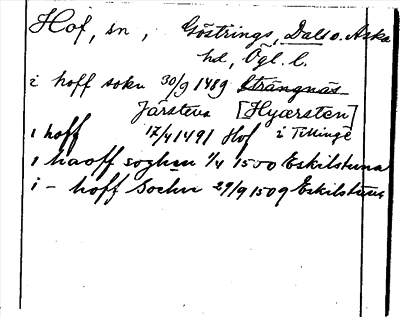 Hof, sn, Göstrings, Dals o. Aska
hd, Ögl. l.
i hoff sokn 30/9 1489 Strängnäs
Järstena [Hyærsten]
i hoff 17/4 1491 Hof i Tillinge
i haoff soghen 1/4 1500 Eskilstuna
i - hoff Sochn 29/9 1509 Eskilstuna